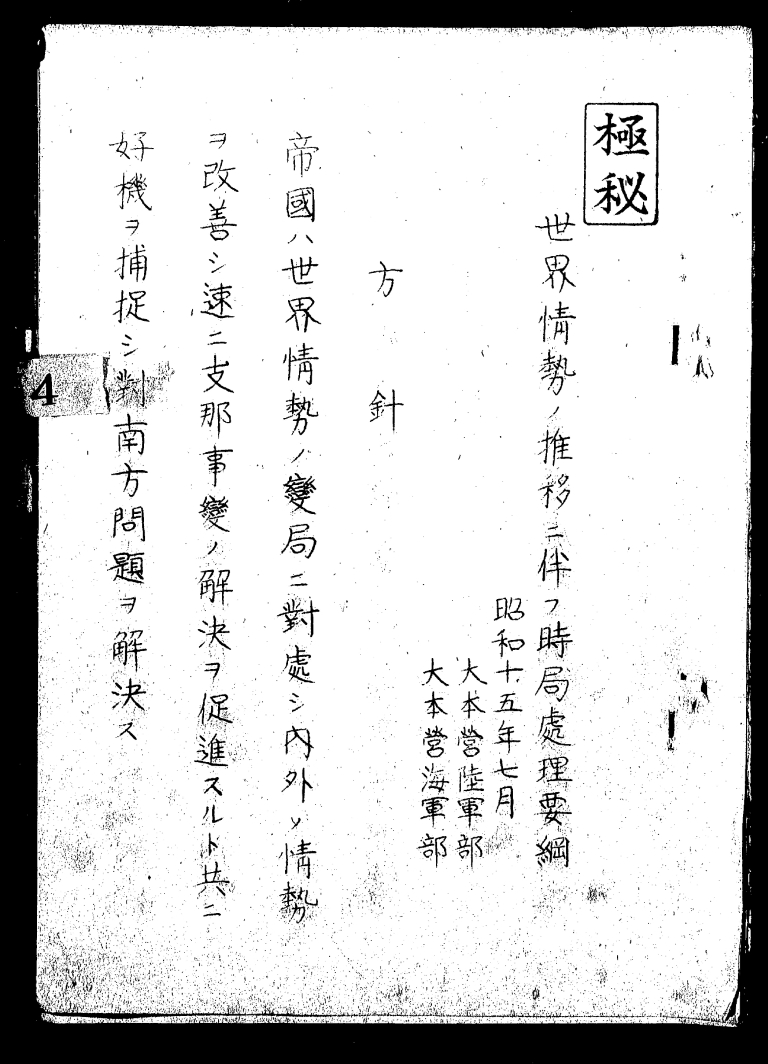 極秘
世界情勢ノ推移ニ伴フ時局處理要綱
昭和十五年七月
大本營陸軍部
大本營海軍部
方針
帝國ハ世界情勢ノ變局ニ對處シ內外ノ情勢
ヲ改善シ速ニ支那事變ノ解決ヲ促進スルト共ニ
好機ヲ捕捉シ對南方問題ヲ解決ス
4